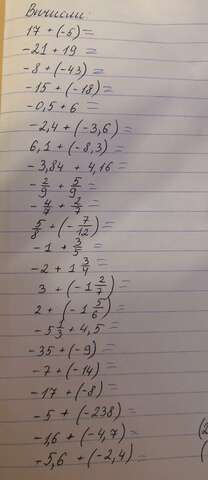 Вычисли:
17 + (-5) =
-21 + 19 =
-8 + (-43) =
-15 + (-18) =
-0,5 + 6 =
-2,4 + (-3,6) =
6,1 + (-8,3) =
-3,84 + 4,16 =
-2/9 + 5/9 =
-4/7 + 3/7 =
5/8 + (-7/12) =
-1 + 3/5 =
-2 + 1 3/4 =
3 + (-1 2/7) =
2 + (-1 5/6) =
-5 1/3 + 4,5 =
-35 + (-9) =
-7 + (-14) =
-17 + (-8) =
-5 + (-238) =
-1,6 + (-4,7) =
-5,6 + (-2,4) =